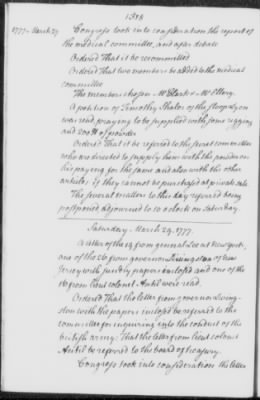 1388
1777 - March 29 Congress took into consideration the report of
the medical committee, and after debate
Ordered That it be recommitted
Ordered That two members be added to the medical
committee
The members chosen Mr Clark & Mr Ellery.
A petition of Timothy Shaler of the sloop
was read, praying to be supplied with some rigging
and 200 lb of powder
Ordered That it be referred to the secret committee
who are directed to supply him with the powder on
his paying for the same and also with the other
articles if they cannot be purchased at private sale.
The several matters to this day referred being
postponed adjourned to 10 o clock on Saturday
Saturday March 29. 1777.
A letter of the 19 from general Lee at New york,
one of the 26 from governor Livingston of New
Jersey with sundry papers inclosed and one of the
16 from lieut colonel Antil were read.
Ordered That the letter from governor Living-
ston with the papers inclosed be referred to the
committee for enquiring into the conduct of the
british army: That the letter from lieut colonel
Antil be referred to the board of treasury.
Congress took into consideration the letter